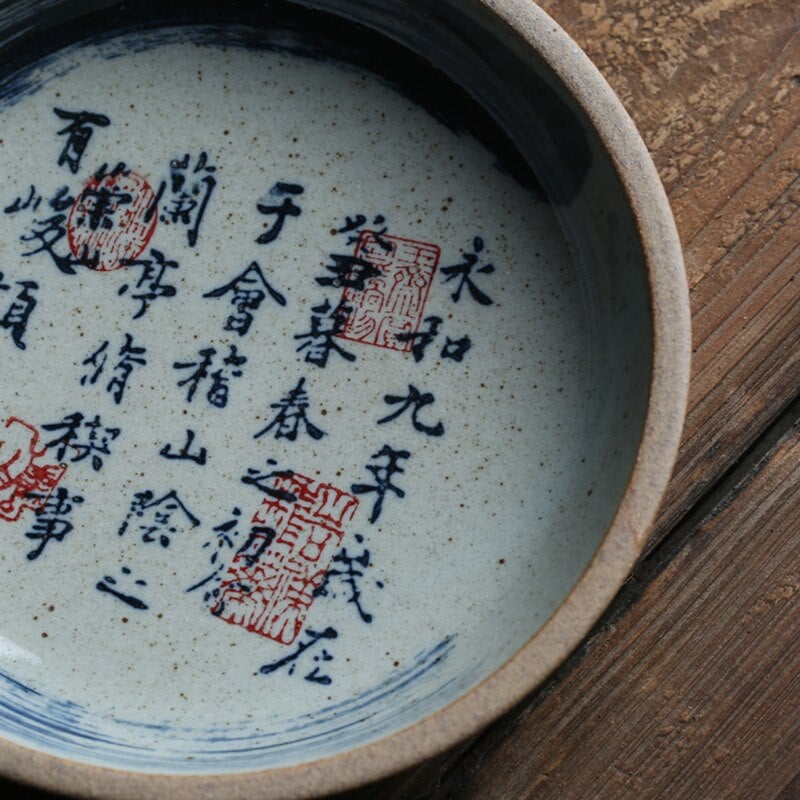 永和九年歲在
癸丑暮春之初會
于會稽山陰之
蘭亭脩稧事
有崇山峻領